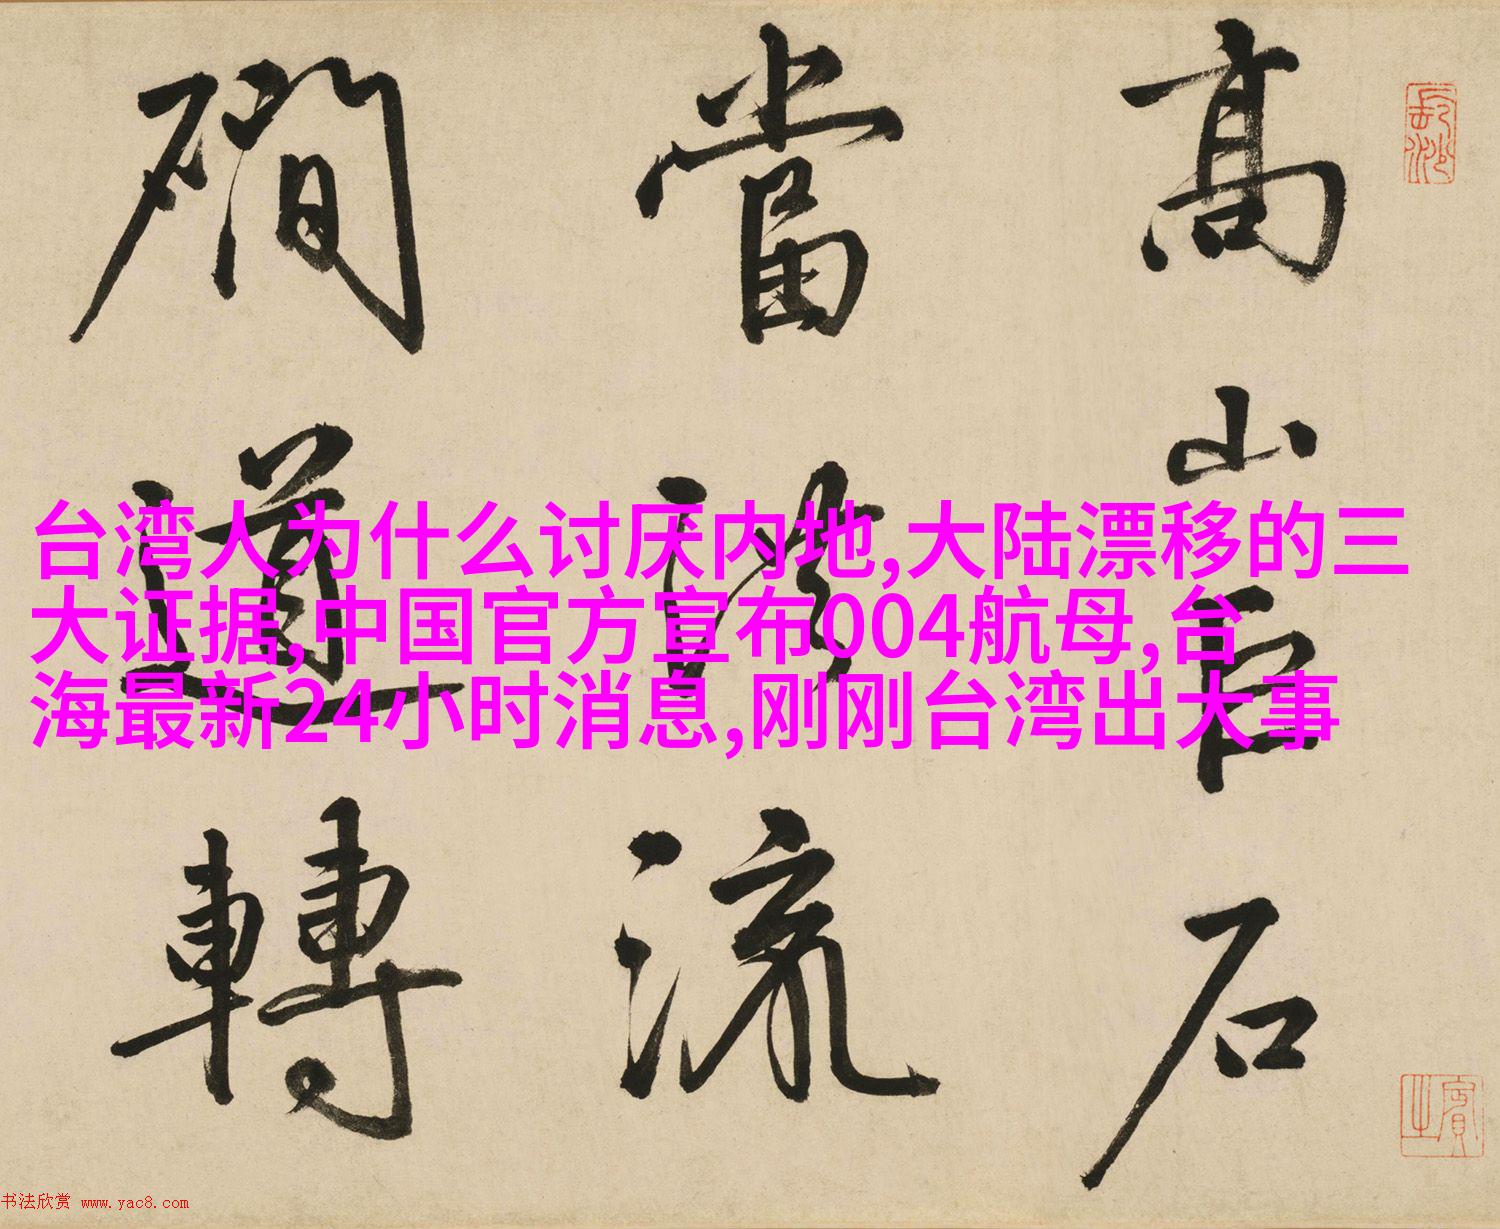 高山巨石
當洪流
磵道轉
台湾人为什么讨厌内地,大陆漂移的三
大证据,中国官方宣布004航母,台
海最新24小时消息,刚刚台湾出大事
书法欣赏 www.yac8.com